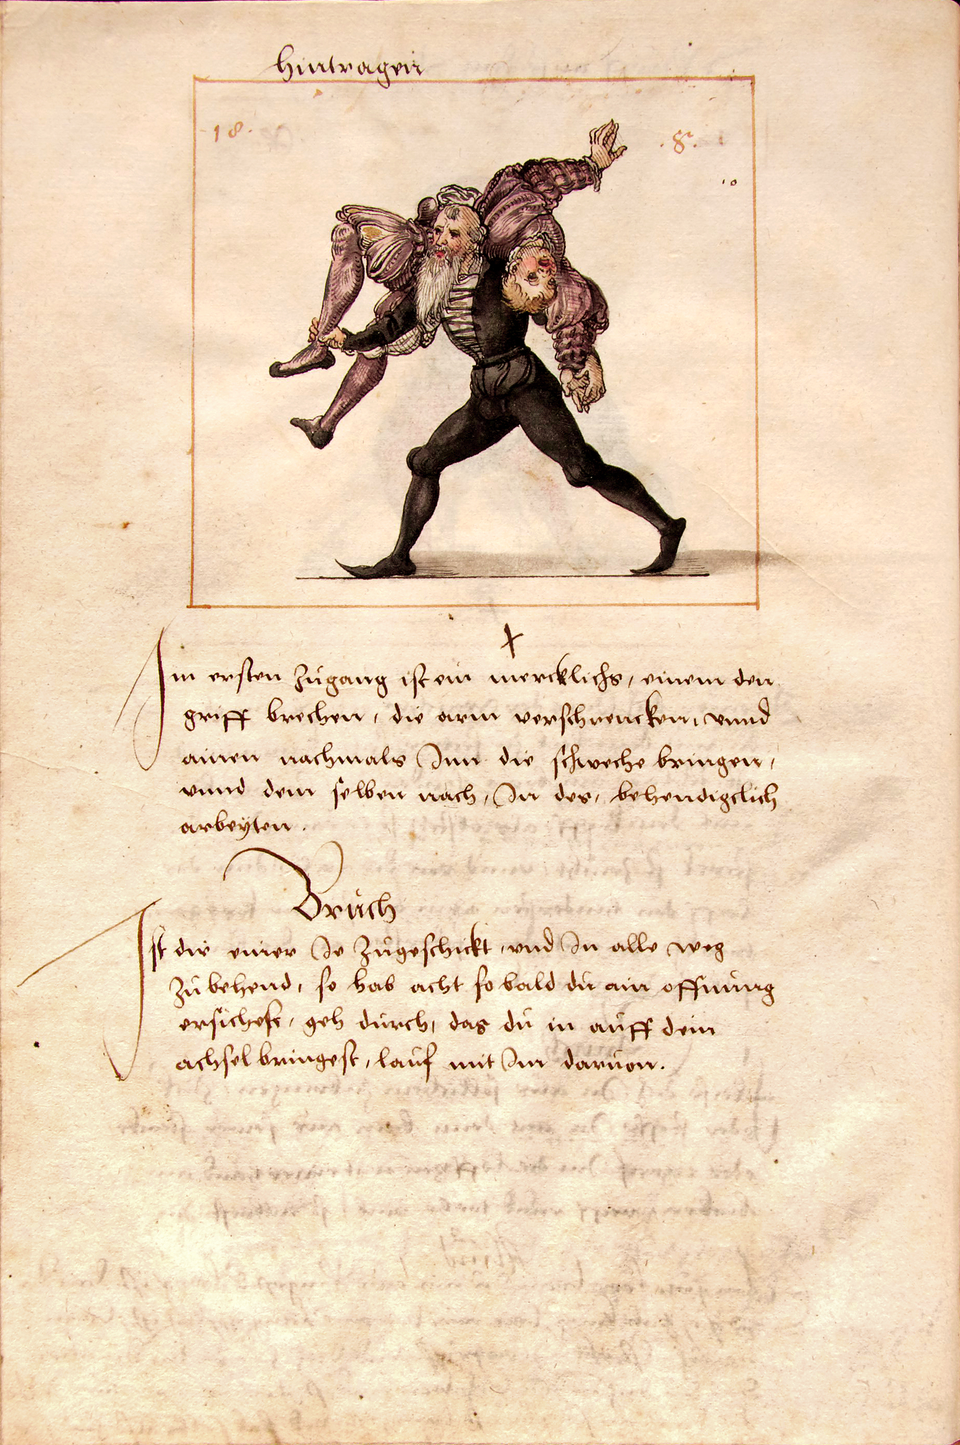 hintragen
18. .8.
Im ersten zůgang ist ein mercklichs, einem den
griff brechen, die arm verschrencken, vnnd
ainen nachmals Inn die schweche bringen,
vnnd dem selben nach, In des, behendigclich
arbeyten.
Brůch
Ist dir einer Je zůgeschickt, vnd In alle weg
zů behend, so hab acht so bald dů ain offnůng
ersichest, geh důrch, das dů in aůff dein
achsel bringest, laůf mit Im daruon.